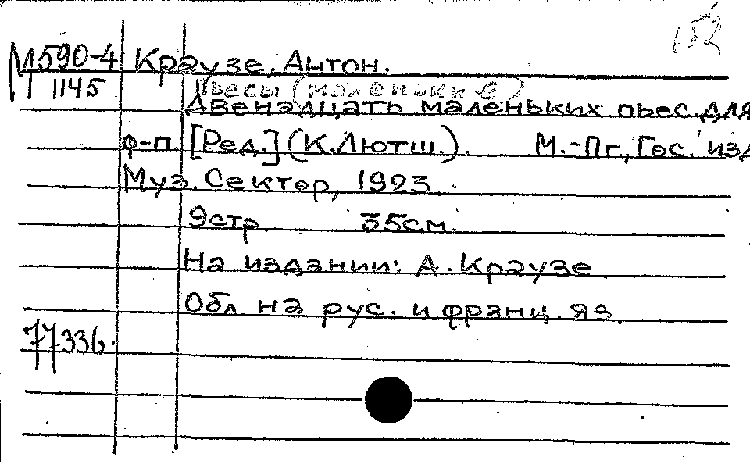 152
М590-4 Краузе, Антон.
1145 Пьесы (маленькие)
Двенадцать маленьких пьес для
ф-п. [Ред.] (К.Лютш.). М.-Пг, Гос. изд
Муз. Сектор, 1923.
9стр 35см.
На издании: А. Краузе
Обл на рус. и франц. яз.
77336.